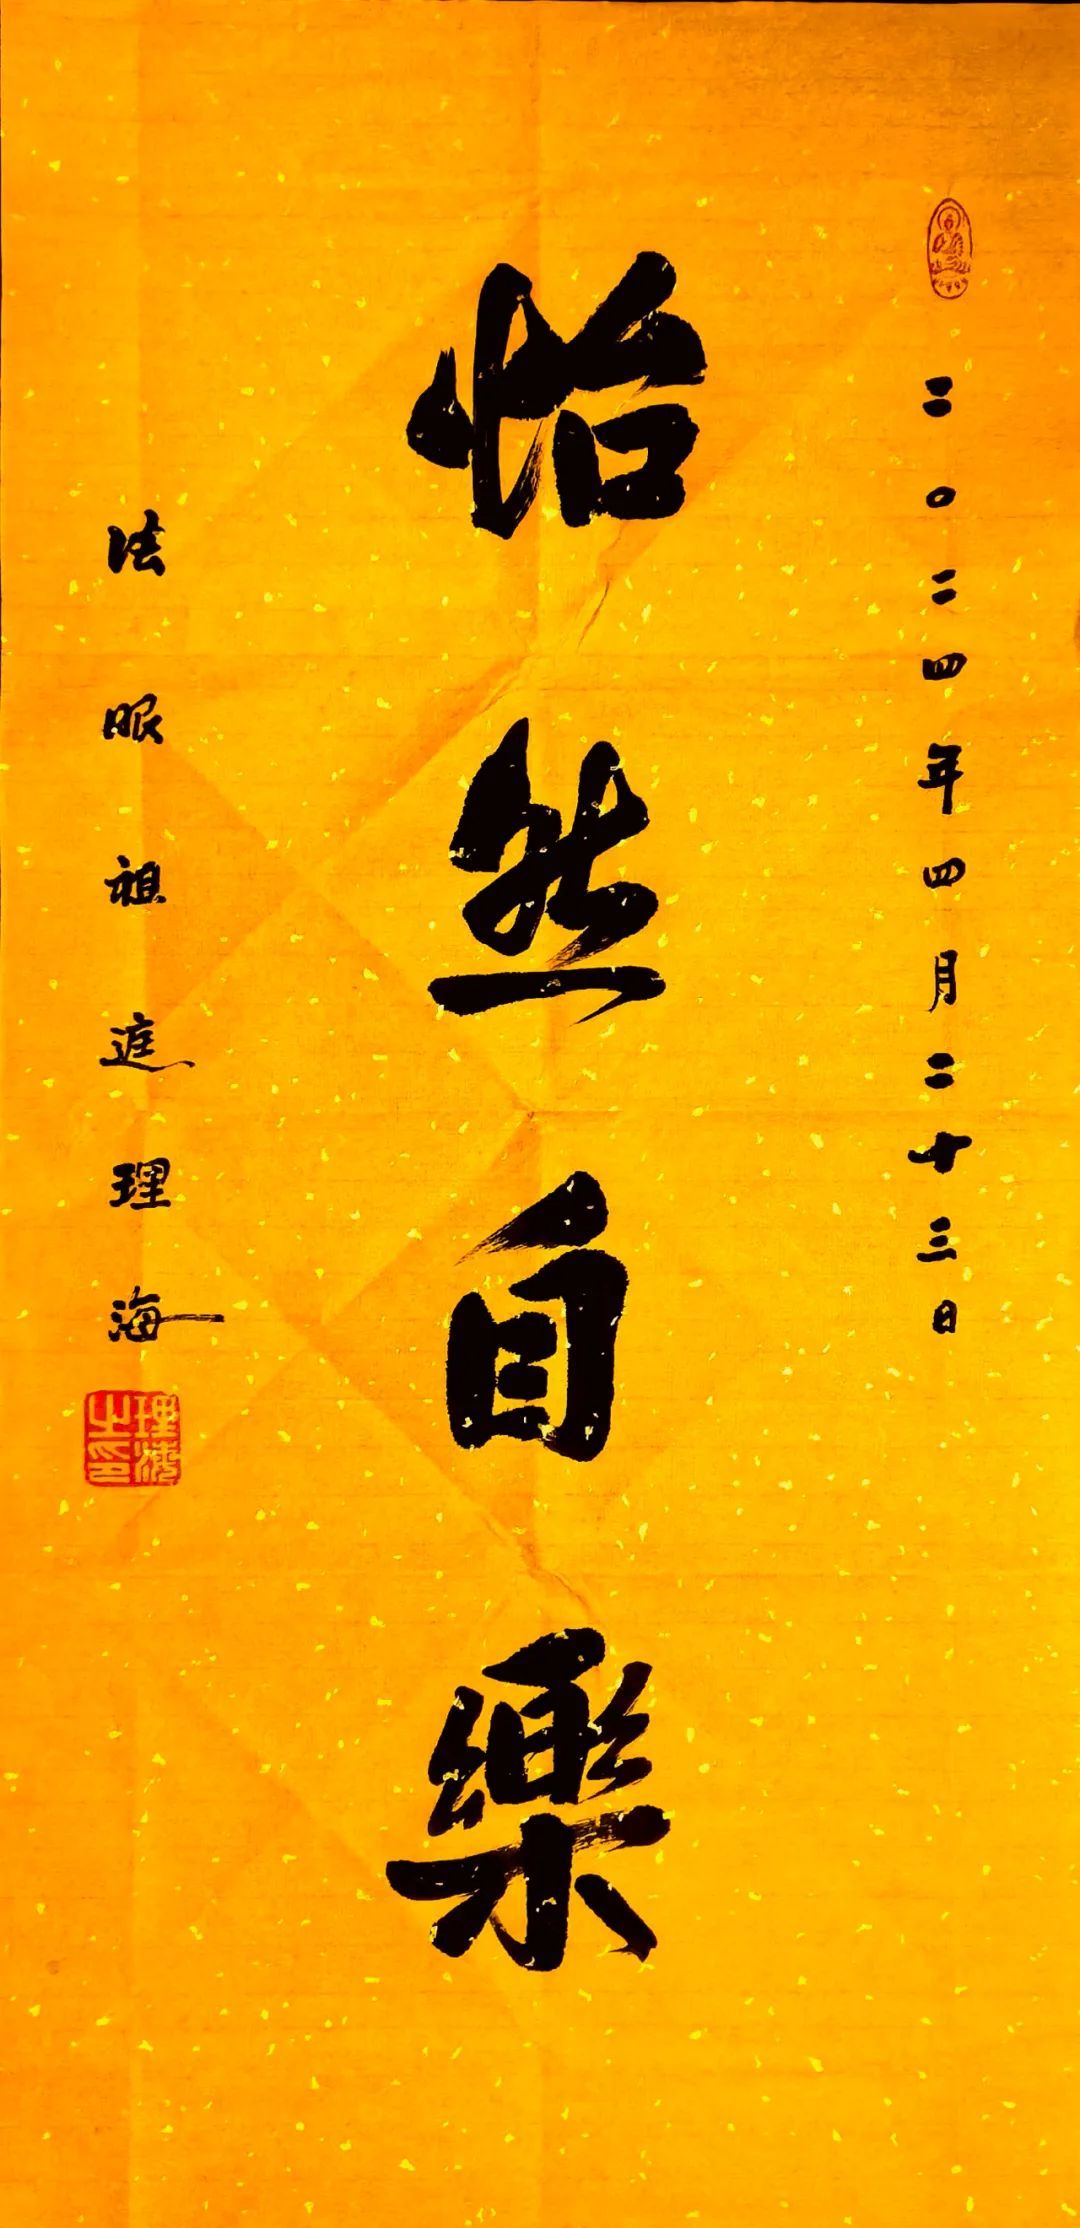 二〇二四年四月二十三日
怡然自樂
法眼祖庭理海
理海之印